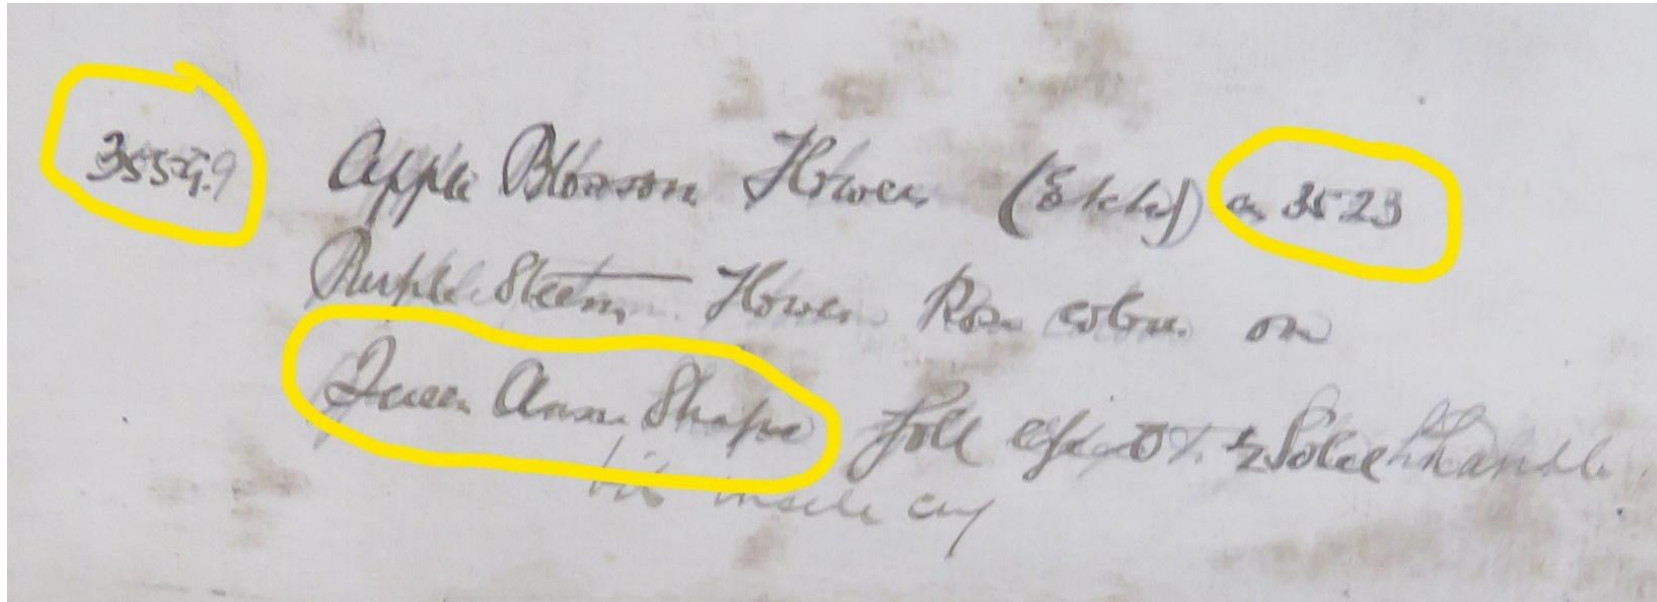 Apple Blossom Flower (Etchd) as 3523
Purple Steem Flower Rose colour on
Queen Anne Shape Gold edge & ½ Solid Handle
bit inside cup